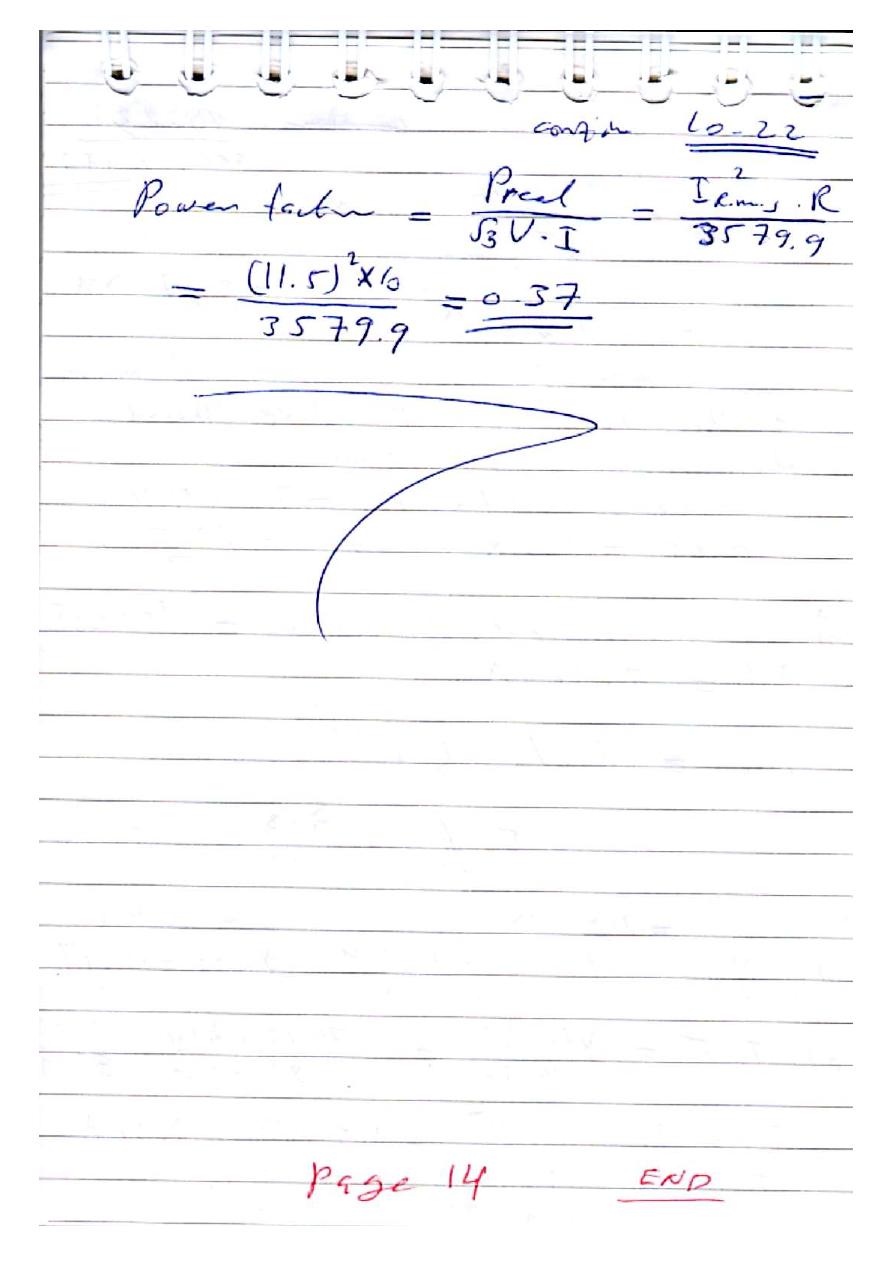 contin 10-22
Power factor = Preal / √3 V · I = I²R.m.s · R / 3579.9
= (11.5)² × 10 / 3579.9 = 0.37
Page 14 END